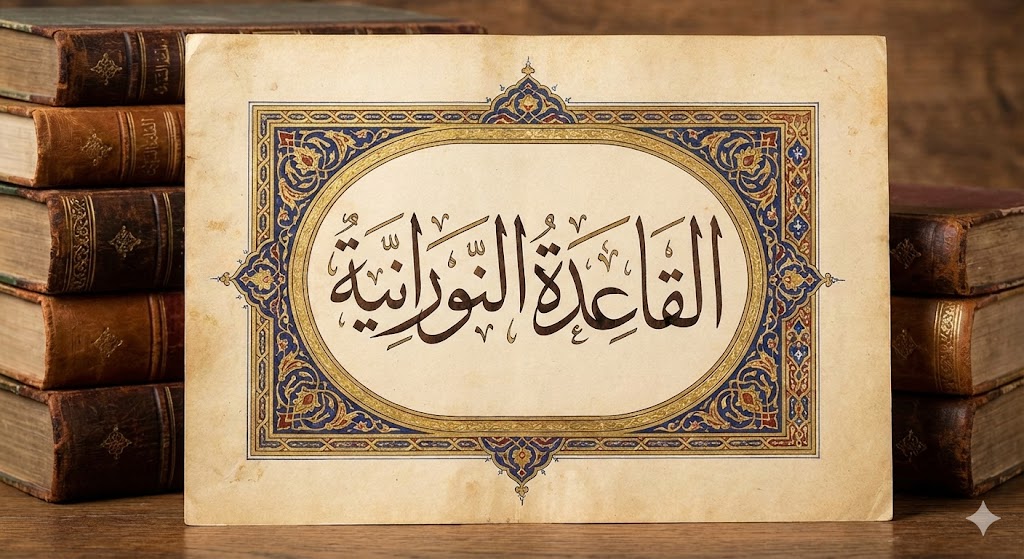 القَاعِدَةُ النُّورَانِيَّةُ